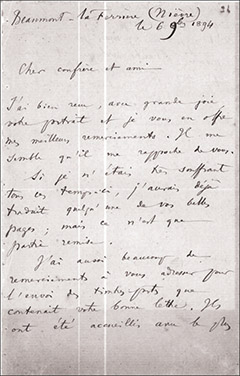 26
Beaumont la Ferrière (Nièvre)
le 6 9bre 1894
Cher confrère et ami
J'ai bien reçu, avec grande joie
votre portrait et je vous en offre
mes meilleurs remerciements. Il me
semble qu'il me rapproche de vous.
Si je n'étais très souffrant
tous ces temps-ci, j'aurais déjà
traduit quelqu'une de vos belles
pages ; mais ce n'est que
partie remise.
J'ai aussi beaucoup de
remerciements à vous adresser pour
l'envoi des timbres-poste que
contenait votre bonne lettre. Ils
ont été accueillis avec le plus